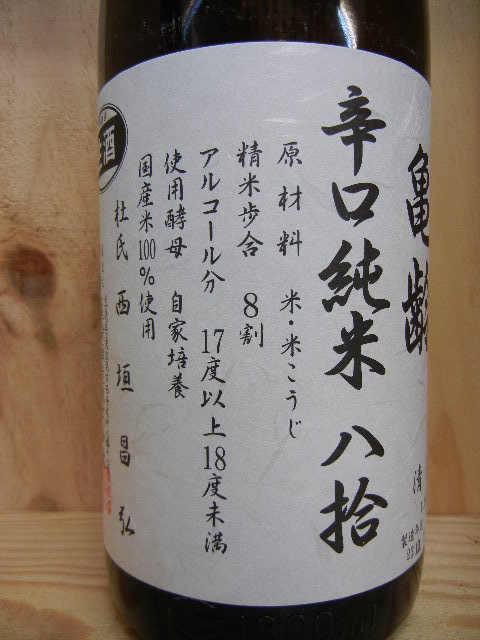 亀齢
辛口純米 八拾
原材料 米・米こうじ
精米歩合 8割
アルコール分 17度以上18度未満
使用酵母 自家培養
国産米100%使用
杜氏 西垣昌弘
清
製造年月
酒
1800ml